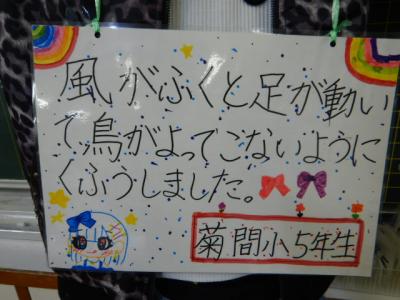 風がふくと足が動い
て、鳥がよってこないように
くふうしました。
菊間小5年生